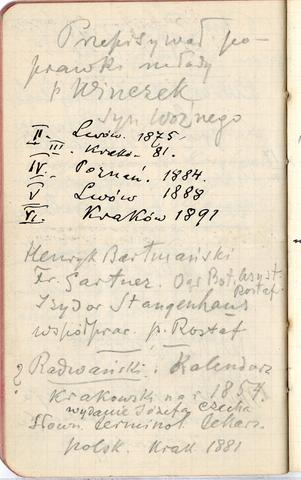 Przepisywał po-
prawki młody
p Winczek
syn woźnego
II - Lwów. 1875
III. Kraków 81.
IV. Poznań. 1884.
V Lwów 1888
VI. Kraków 1891
Henryk Bartmański
Fr. Gartner. Ogr Bot. asyst.
Rostaf
Izydor Stangenhaus
współprac. p. Rostaf
? Radwański. Kalendarz
Krakowski na r 1854.
wydanie Józefa Czecha
Słown. terminol. lekarz.
polsk. Krak 1881